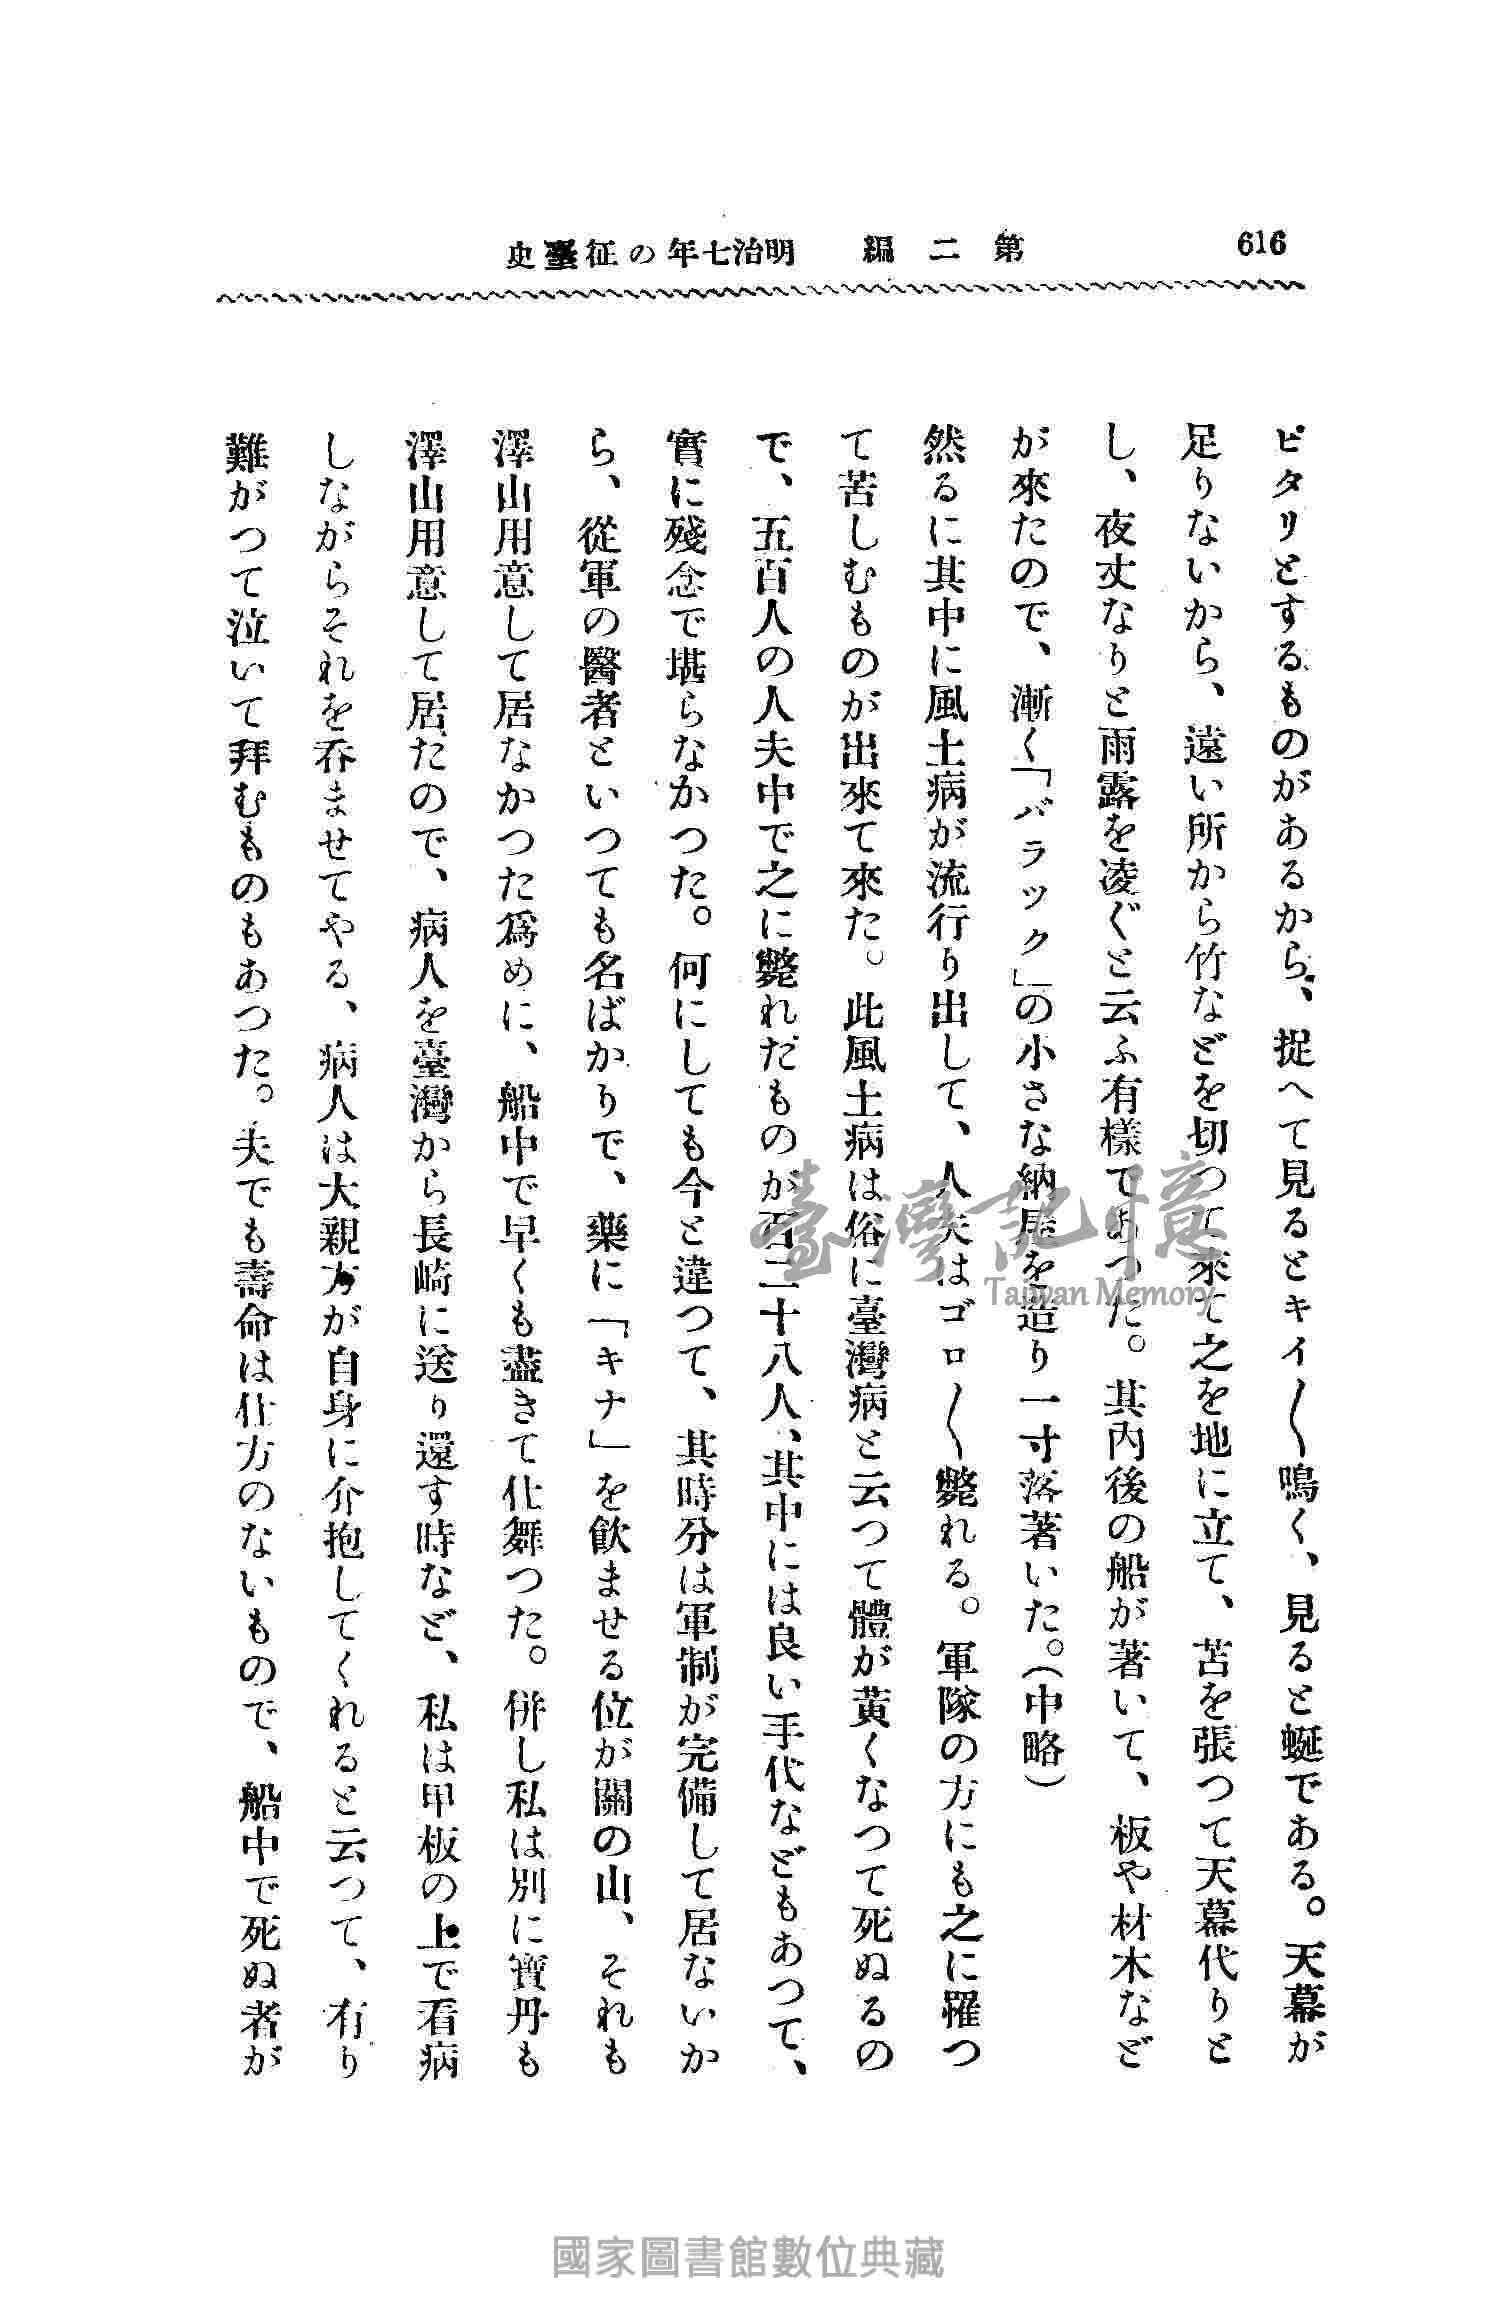 616
第二編　明治七年の征臺史
ピタリとするものがあるから、捉へて見るとキイ〱鳴く、見ると蜒である。天幕が
足りないから、遠い所から竹などを切つて來て之を地に立て、苫を張つて天幕代りと
し、夜丈なりと雨露を凌ぐと云ふ有樣であつた。其內後の船が著いて、板や材木など
が來たので、漸く「バラック」の小さな納屋を造り一寸落著いた。（中略）
然るに其中に風土病が流行り出して、人夫はゴロ〱斃れる。軍隊の方にも之に罹つ
て苦しむものが出來て來た。此風土病は俗に臺灣病と云つて體が黄くなつて死ぬるの
で、五百人の人夫中で之に斃れたものが百二十八人、其中には良い手代などもあつて、
實に殘念で堪らなかつた。何にしても今と違つて、其時分は軍制が完備して居ないか
ら、從軍の醫者といつても名ばかりで、藥に「キナ」を飮ませる位が關の山、それも
澤山用意して居なかつた爲めに、船中で早くも盡きて仕舞つた。併し私は別に寶丹も
澤山用意して居たので、病人を臺灣から長崎に送り還す時など、私は甲板の上で看病
しながらそれを呑ませてやる、病人は大親方が自身に介抱してくれると云つて、有り
難がつて泣いて拜むものもあつた。夫でも壽命は仕方のないもので、船中で死ぬ者が
臺灣記憶
Taiwan Memory
國家圖書館數位典藏